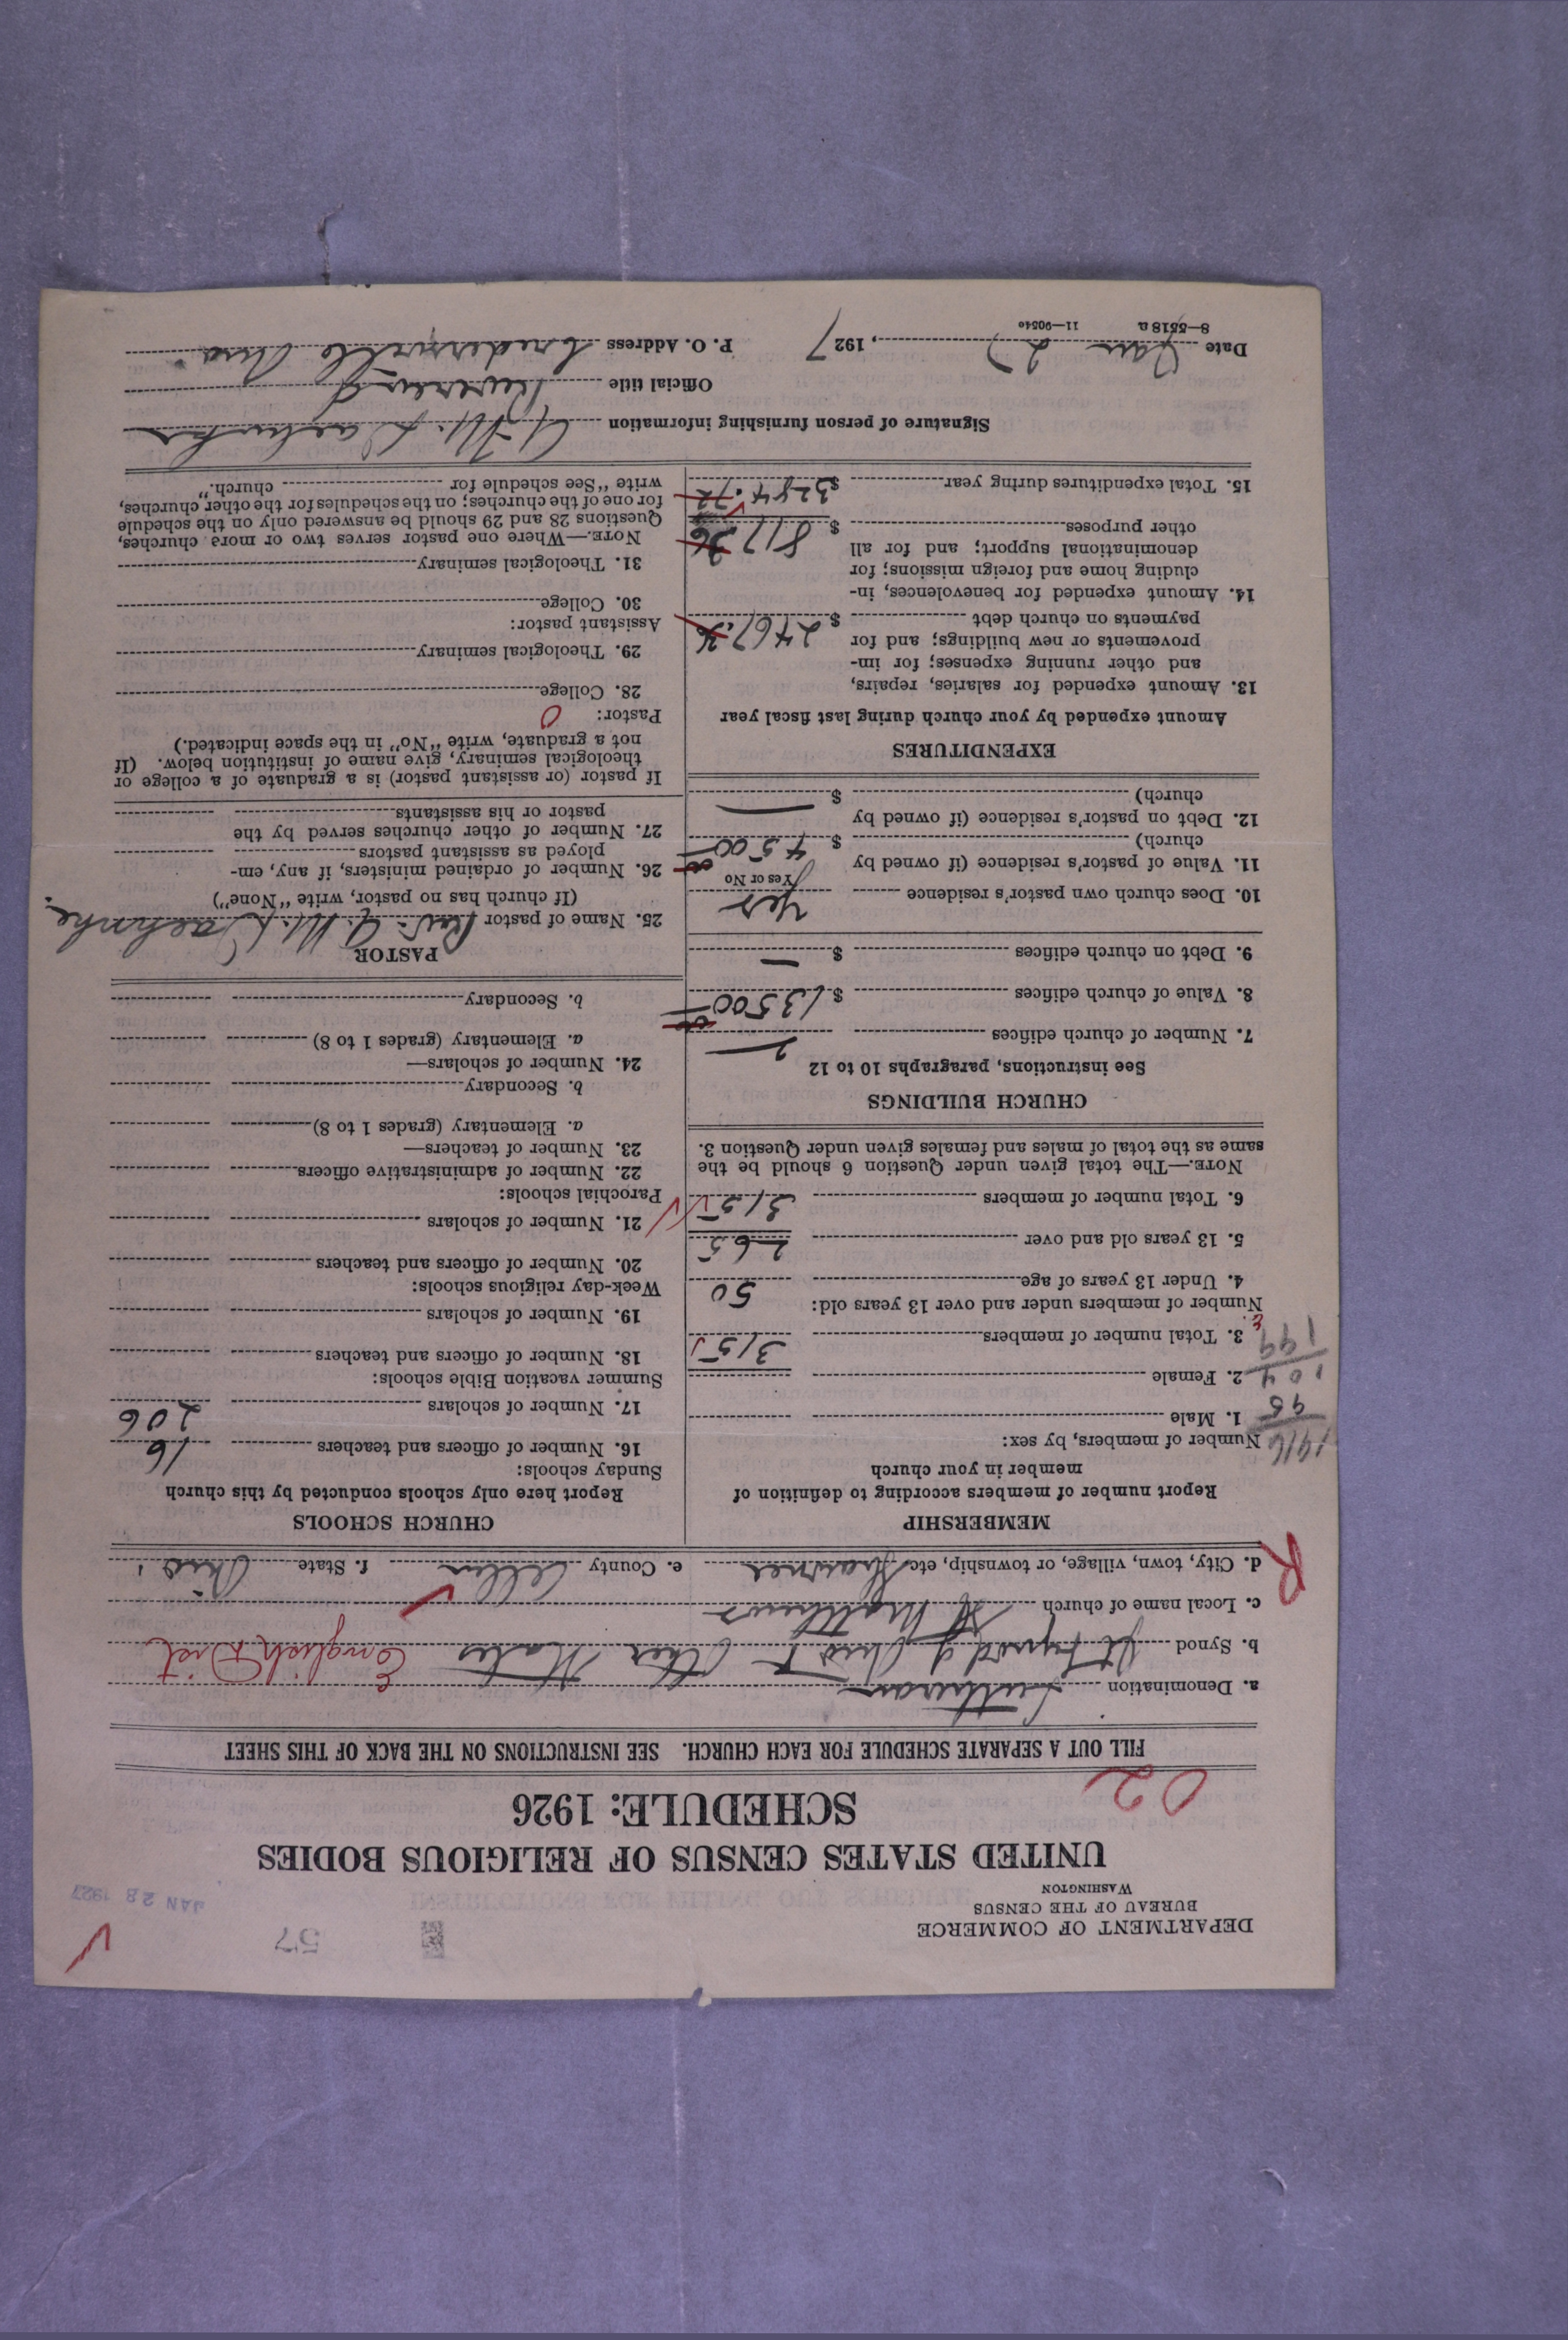 DEPARTMENT OF COMMERCE
BUREAU OF THE CENSUS
WASHINGTON
57
JAN 28 1927
UNITED STATES CENSUS OF RELIGIOUS BODIES
SCHEDULE: 1926
02
FILL OUT A SEPARATE SCHEDULE FOR EACH CHURCH. SEE INSTRUCTIONS ON THE BACK OF THIS SHEET
a. Denomination Lutheran
b. Synod Jt Synod of Ohio & Other States English Dist
c. Local name of church St Matthews
R
d. City, town, village, or township, etc. e. County Allen f. State Ohio
MEMBERSHIP
Report number of members according to definition of
member in your church
Number of members, by sex:
1916
1. Male
95
2. Female
104
3. Total number of members 315
199
Number of members under and over 13 years old:
4. Under 13 years of age 50
5. 13 years old and over 265
6. Total number of members 315
NOTE.—The total given under Question 6 should be the
same as the total of males and females given under Question 3.
CHURCH BUILDINGS
See instructions, paragraphs 10 to 12
7. Number of church edifices
8. Value of church edifices $ 13500
9. Debt on church edifices $ —
10. Does church own pastor's residence Yes
Yes or No
11. Value of pastor's residence (if owned by
church) $ 4500
12. Debt on pastor's residence (if owned by
church) $ —
EXPENDITURES
Amount expended by your church during last fiscal year
13. Amount expended for salaries, repairs,
and other running expenses; for im-
provements or new buildings; and for
payments on church debt $ 2467.36
14. Amount expended for benevolences, in-
cluding home and foreign missions; for
denominational support; and for all
other purposes $ 817.36
15. Total expenditures during year $ 3284.72
CHURCH SCHOOLS
Report here only schools conducted by this church
Sunday schools:
16. Number of officers and teachers 16
17. Number of scholars 206
Summer vacation Bible schools:
18. Number of officers and teachers
19. Number of scholars
Week-day religious schools:
20. Number of officers and teachers
21. Number of scholars
Parochial schools:
22. Number of administrative officers
23. Number of teachers—
a. Elementary (grades 1 to 8)
b. Secondary
24. Number of scholars—
a. Elementary (grades 1 to 8)
b. Secondary
PASTOR
25. Name of pastor Rev. G. M.
(If church has no pastor, write "None")
26. Number of ordained ministers, if any, em-
ployed as assistant pastors
27. Number of other churches served by the
pastor or his assistants
If pastor (or assistant pastor) is a graduate of a college or
theological seminary, give name of institution below. (If
not a graduate, write "No" in the space indicated.)
Pastor: 0
28. College
29. Theological seminary
Assistant pastor:
30. College
31. Theological seminary
NOTE.—Where one pastor serves two or more churches,
Questions 28 and 29 should be answered only on the schedule
for one of the churches; on the schedules for the other churches,
write "See schedule for church."
Signature of person furnishing information G. M.
Official title Reverend
Date Jan 27, 1927 P. O. Address Cridersville Ohio
8—5518a 11—9054c